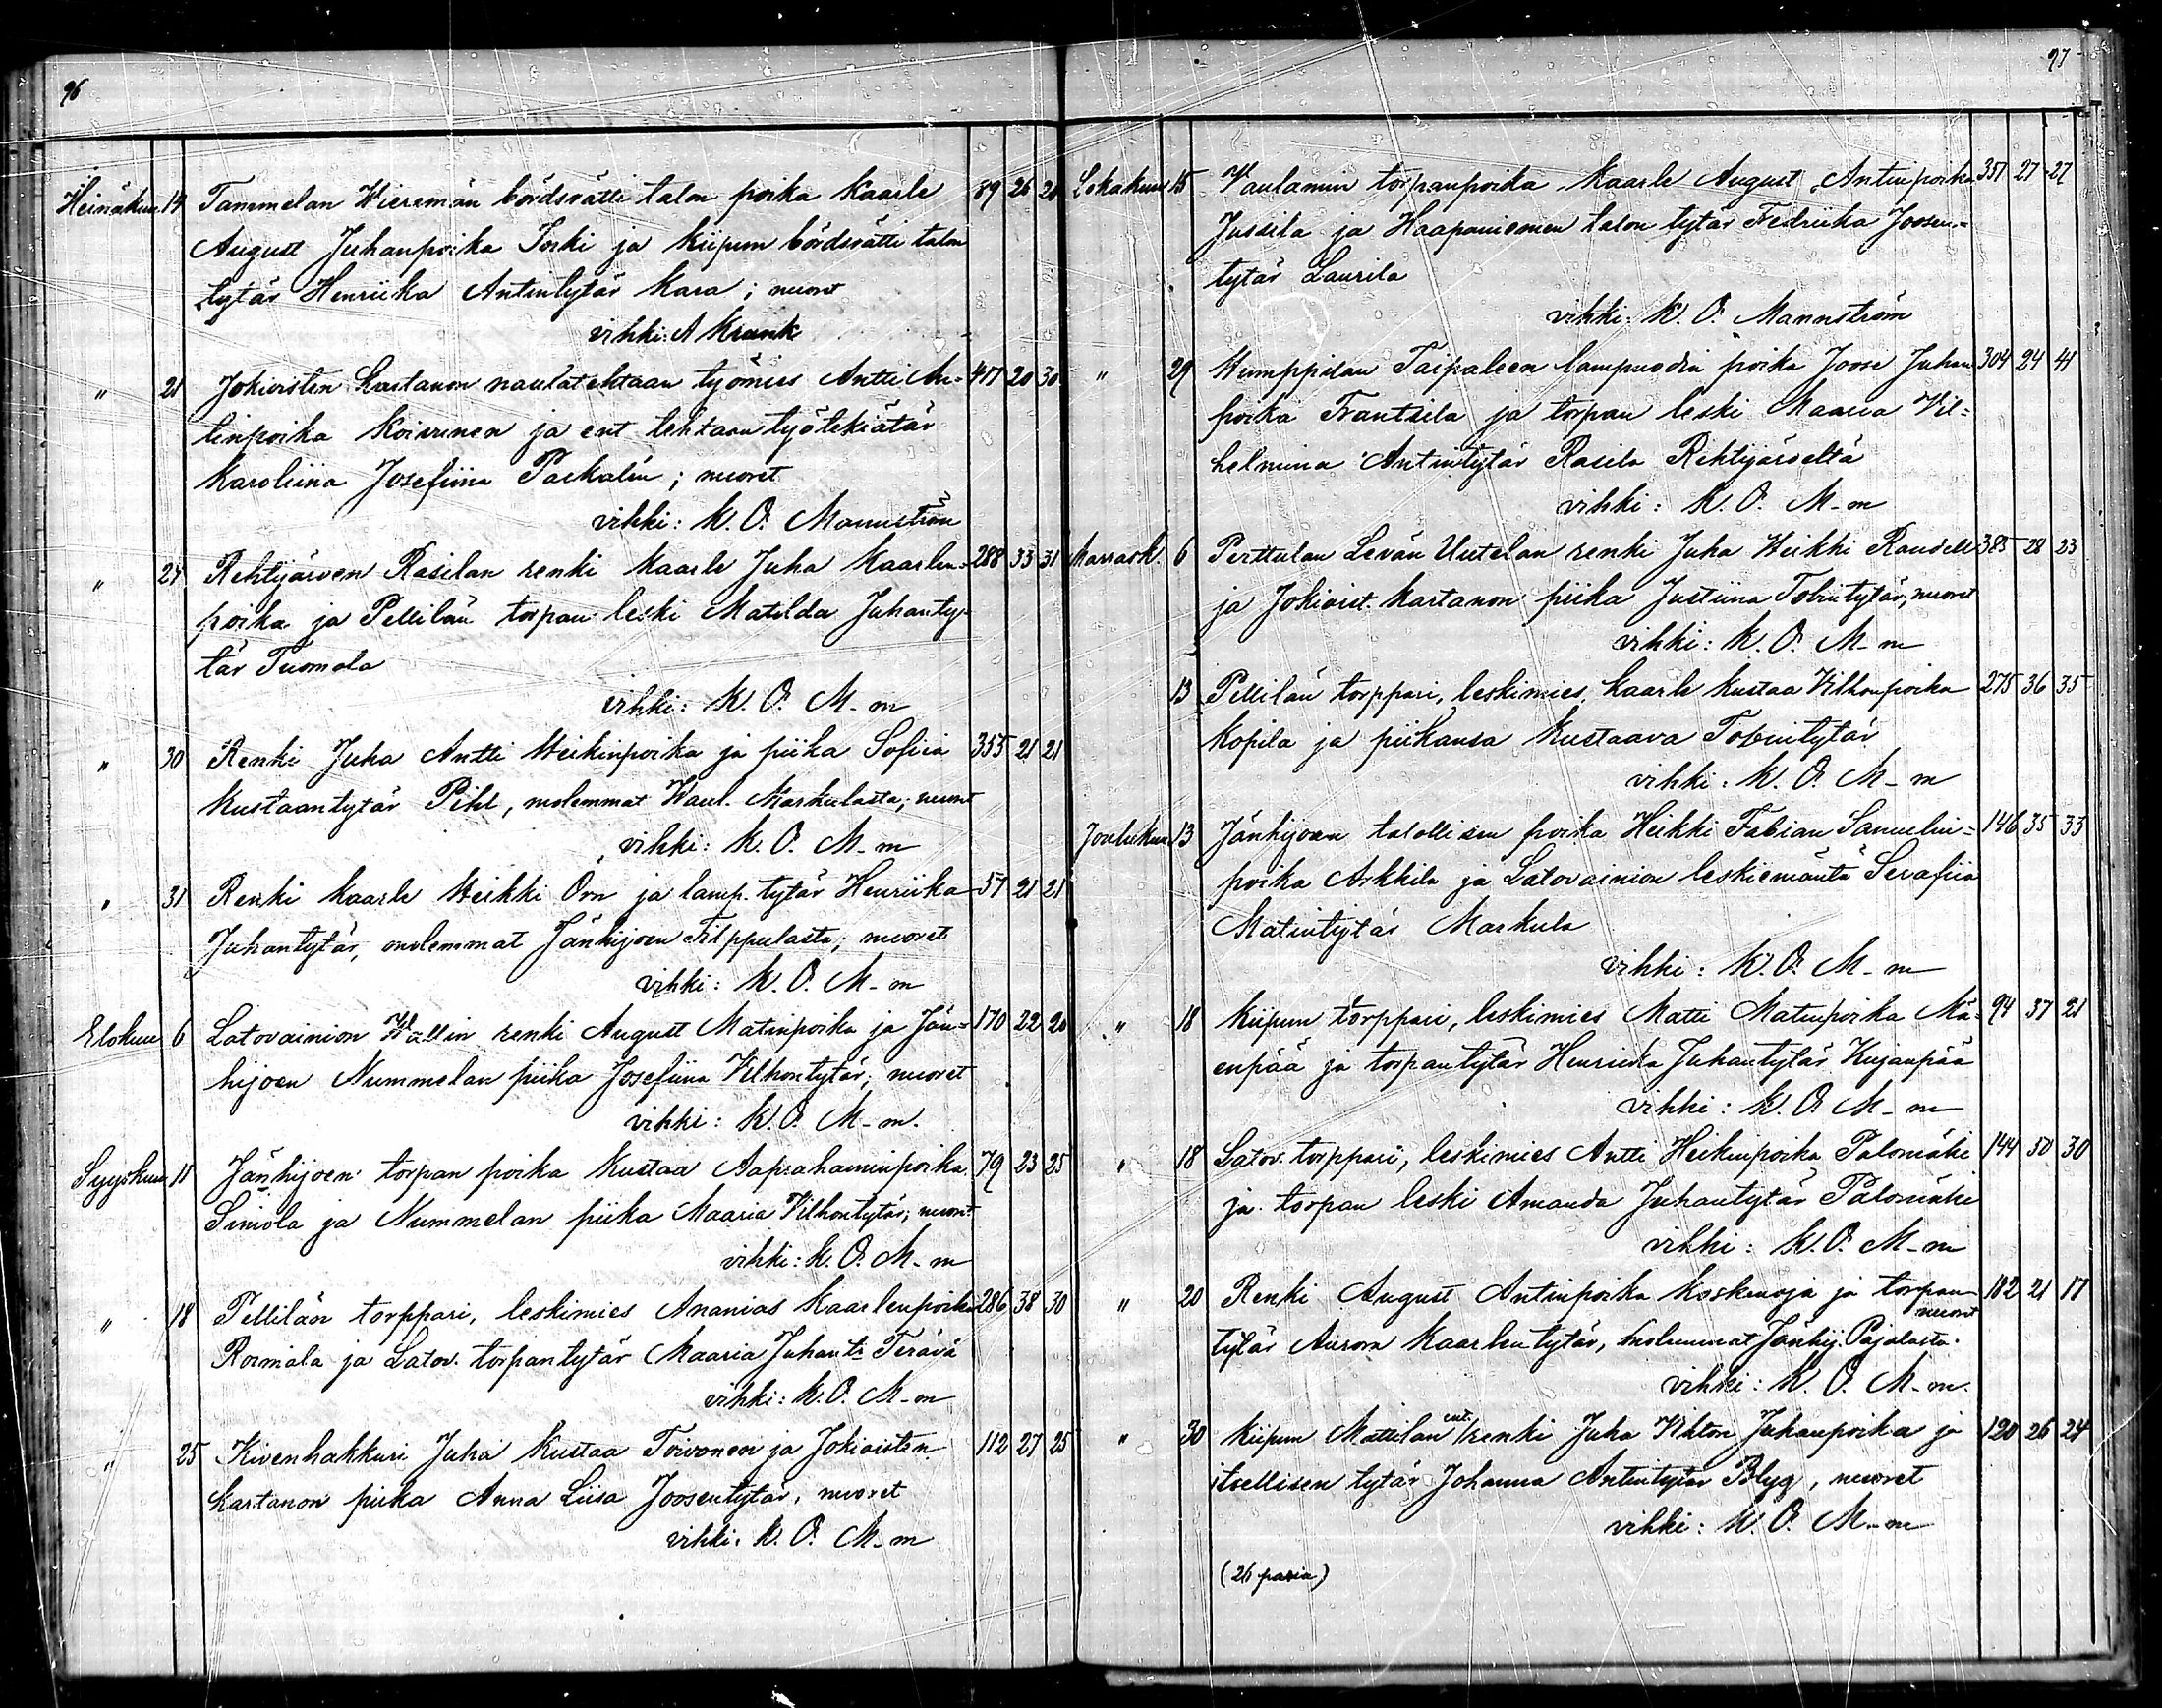 96
Heinäkuu 14 Tammelan Hiersmän bördsrätti talon poika Kaarle 89 26 20
August Juhanpoika Torki ja Kiipun bördsrätti talon
tytär Henriika Antintytär Kara; nuoret
vihki: A Krank
" 21 Jokioisten Kartanon naulatehtaan työmies Antti An= 417 20 30
tinpoika Koivunen ja ent tehtaan työtekiätär
Karoliina Josefiina Packalin; nuoret
vihki: K. O. Mannström
" 24 Rehtijärven Rasilan renki Kaarle Juha Kaarlen= 288 33 31
poika ja Pellilän torpan leski Matilda Juhanty=
tär Tuomola
vihki: K. O. M-m
" 30 Renki Juha Antti Heikinpoika ja piika Sofiia 355 21 21
Kustaantytär Pihl, molemmat Waul. Markulasta; nuoret
vihki: K. O. M-m
" 31 Renki Kaarle Heikki Örn ja lamp. tytär Henriika 57 21 21
Juhantytär, molemmat Jänhijoen Filppulasta; nuoret
vihki: K. O. M-m
Elokuu 6 Latovainion renki August Matinpoika ja Jän= 170 22 20
hijoen Nummelan piika Josefiina Vilhontytär; nuoret
vihki: K. O. M-m.
Syyskuu 11 Jänhijoen torpan poika Kustaa Aaprahaminpoika 79 23 25
Simola ja Nummelan piika Maaria Vilhontytär; nuoret
vihki: K. O. M-m
" 18 Pellilän torppari, leskimies Ananias Kaarlenpoika 286 38 30
Roimala ja Latov. torpantytär Maaria Juhant: Terävä
vihki: K. O. M-m
" 25 Kivenhakkuri Juha Kustaa Toivonen ja Jokioisten 112 27 25
kartanon piika Anna Liisa Joosentytär, nuoret
vihki: K. O. M-m
97
Lokakuu 15 Vaulamin torpanpoika Kaarle August Antinpoika 357 27 27
Jussila ja Haapaniemen talon tytär Fedriika Joosen=
tytär Laurila
vihki: K. O. Mannström
" 29 Humppilan Taipaleen lampuodin poika Joose Juhan 304 24 41
poika Frantsila ja torpan leski Maaria Vil=
helmina Antintytär Rasila Rehtijärveltä
vihki: K. O. M-m
Marrask. 6 Perttulan Levän Uutelan renki Juha Heikki Randell 385 28 23
ja Jokioist. Kartanon piika Justiina Tobintytär, nuoret
vihki: K. O. M-m
13 Pellilän torppari, leskimies Kaarle Kustaa Vilhonpoika 275 36 35
Kopila ja piikansa Kustaava Tobintytär
vihki: K. O. M-m
Joulukuu 13 Jänhijoen talollisen poika Heikki Fabian Samuelin= 146 35 33
poika Arkkila ja Latovainion leskiemäntä Serafiia
Matintytär Markula
vihki: K. O. M-m
" 18 Kiipun torppari, leskimies Matti Matinpoika Mä= 94 37 21
enpää ja torpantytär Henriika Juhantytär Kujanpää
vihki: K. O. M-m
" 18 Latov. torppari, leskimies Antti Heikinpoika Palomäki 144 50 30
ja torpan leski Amanda Juhantytär Palomäki
vihki: K. O. M-m
" 20 Renki August Antinpoika Koskenoja ja torpan 182 21 17
nuoret
tytär Aurora Kaarlentytär, molemmat Jänhij. Pajalasta.
vihki: K. O. M-m.
" 30 Kiipun Mattilan ent. renki Juha Vihtori Juhanpoika ja 120 26 24
itsellisen tytär Johanna Antintytär Blyg, nuoret
vihki: K. O. M-m
(26 paria)